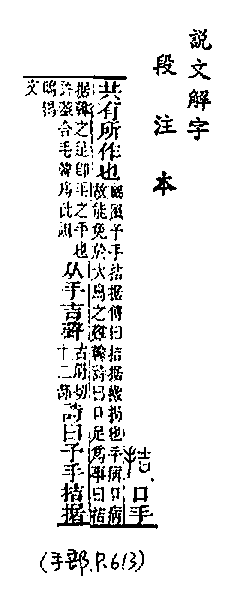 説文解字
段注本
拮 口手
共有所作也 豳風予手拮据傳曰拮据撠挶也手病口病故能免於大鳥之難韓詩曰口足爲事曰拮
据韓之足卽毛之手也許葢合毛韓爲此訓 从手吉聲 古屑切十二部 詩曰予手拮据
鴟鴞
文
(手部.P.613)